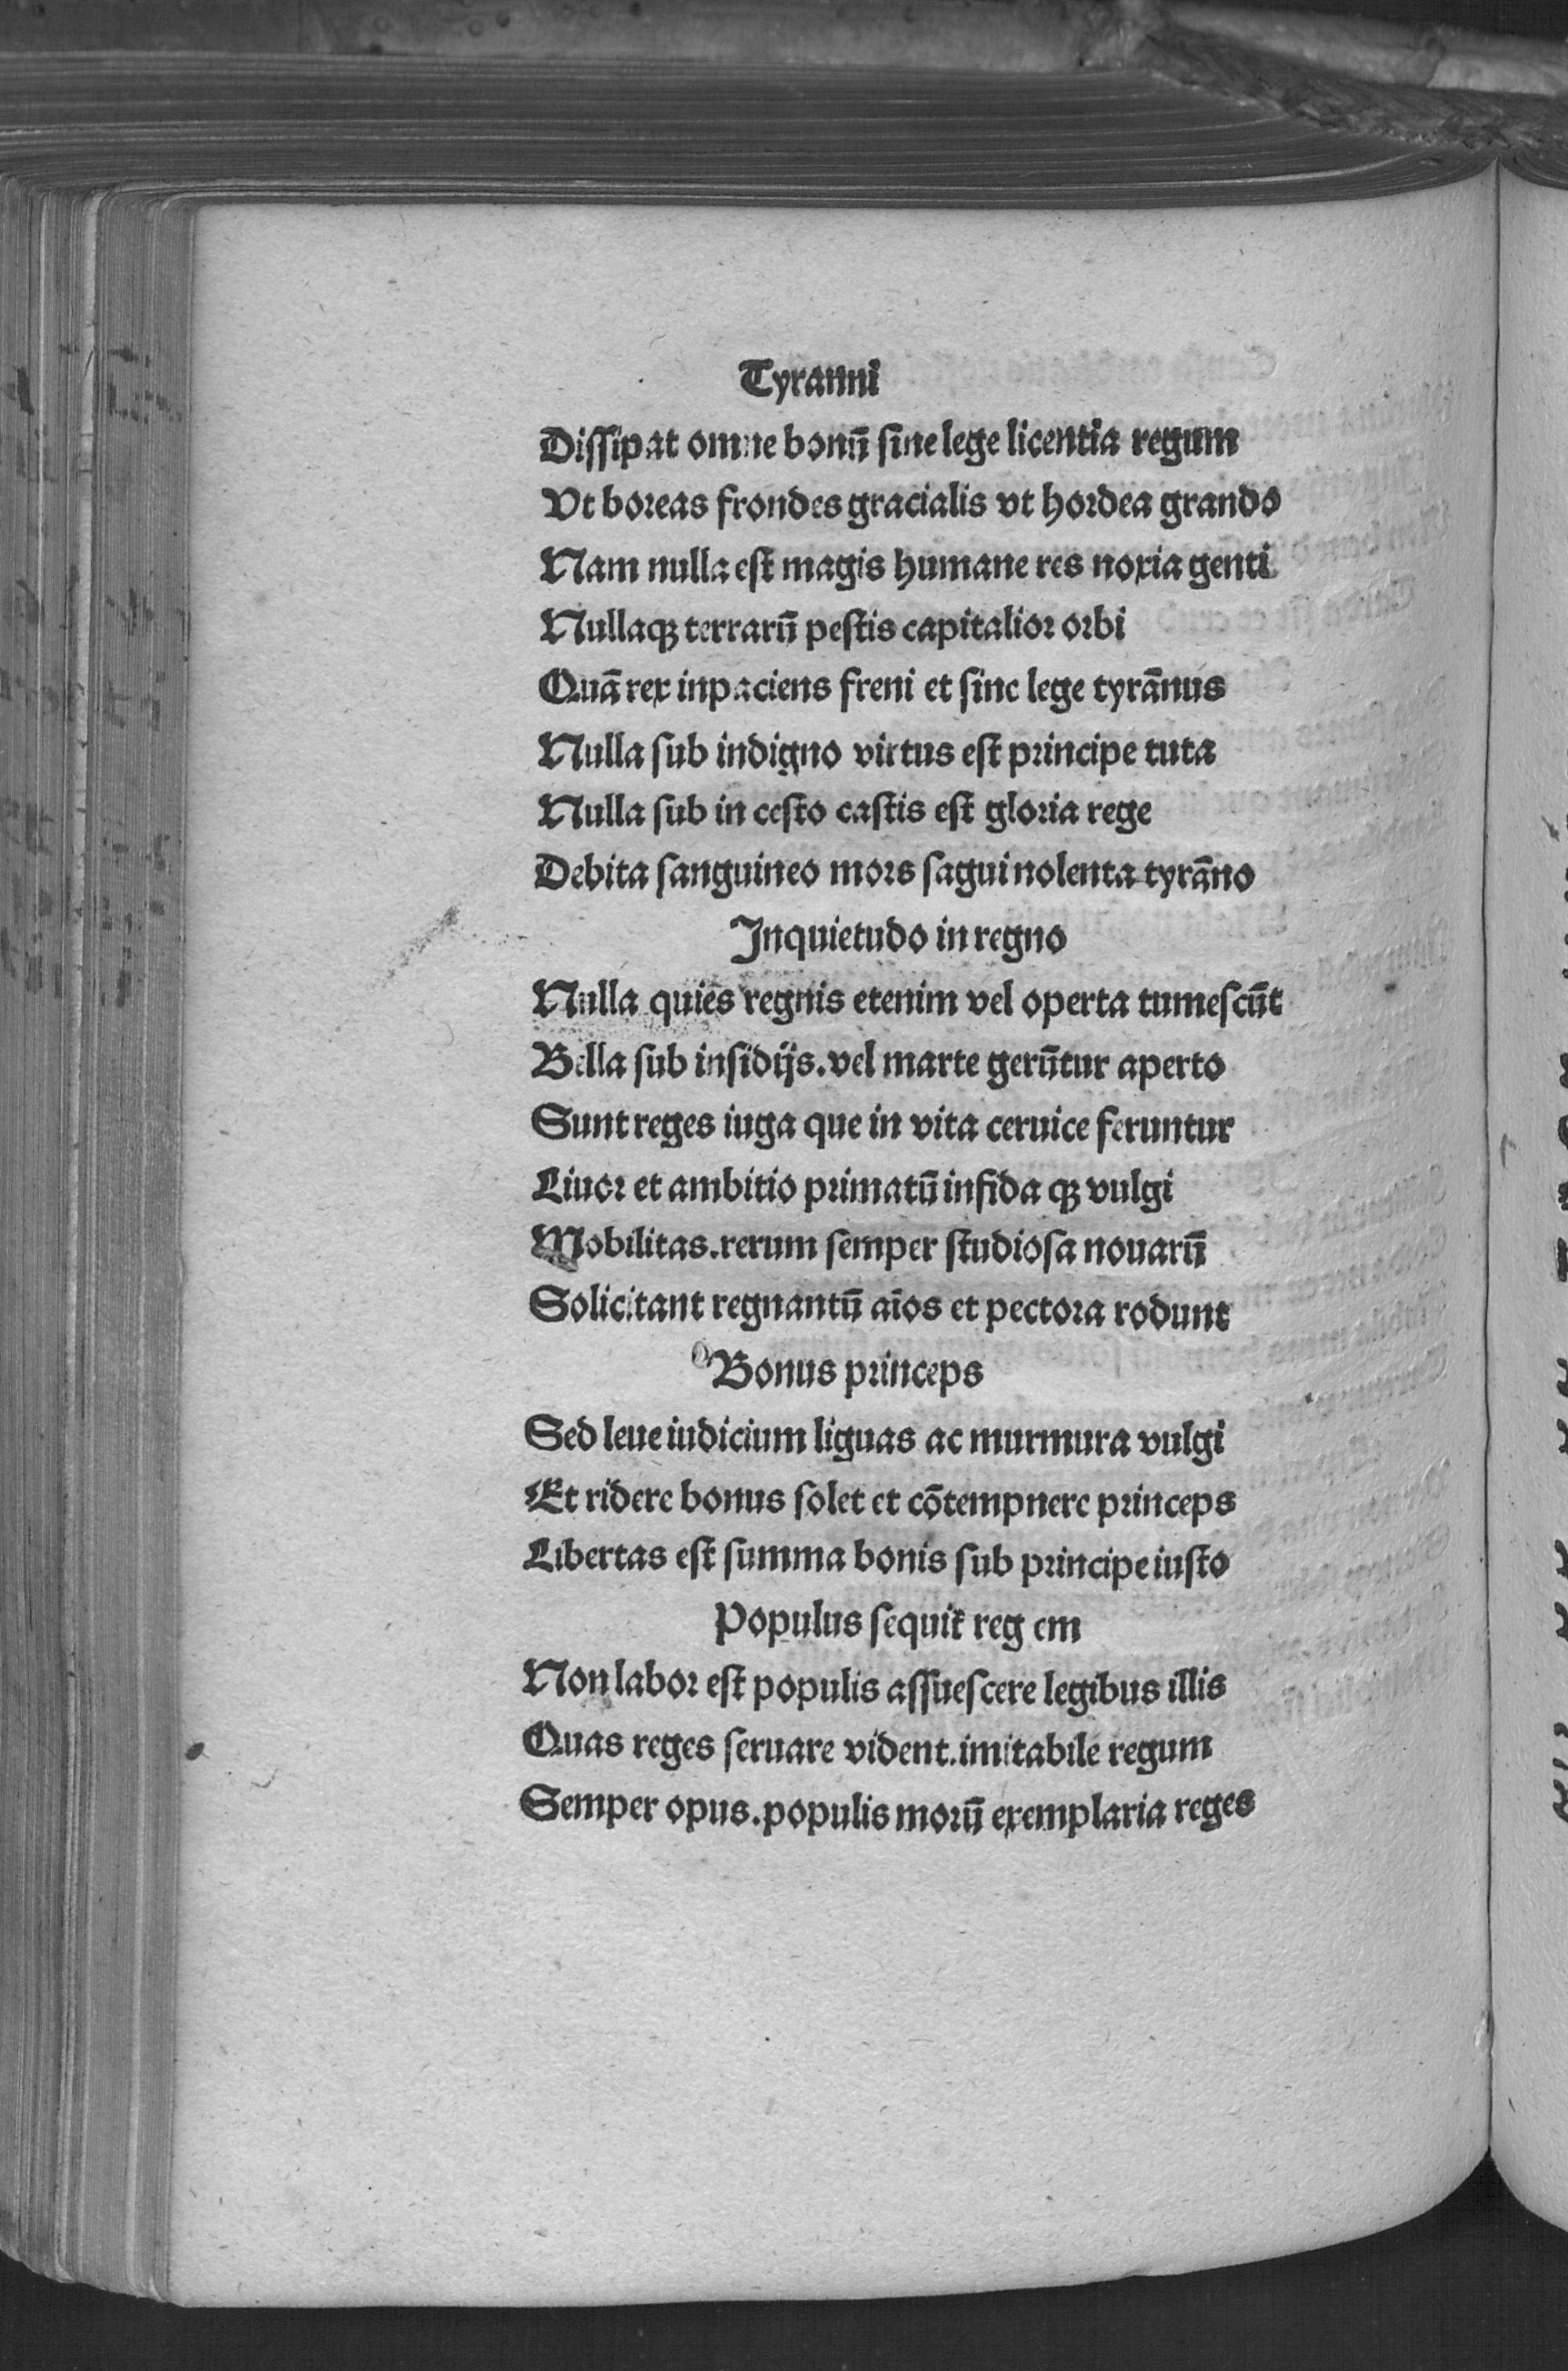 Tyranni
Dissipat omne bonū sine lege licentia regum
Vt boreas frondes gracialis vt hordea grando
Nam nulla est magis humane res noxia genti
Nullaqꝫ terrarū pestis capitalior orbi
Quā rex inpaciens freni et sine lege tyrānus
Nulla sub indigno virtus est principe tuta
Nulla sub in cesto castis est gloria rege
Debita sanguineo mors saguinolenta tyrāno
Inquietudo in regno
Nulla quies regnis etenim vel operta tumescūt
Bella sub insidijs. vel marte gerūtur aperto
Sunt reges iuga que in vita ceruice feruntur
Liuor et ambitio primatū infida qꝫ vulgi
Mobilitas. rerum semper studiosa nouarū
Solicitant regnantū aīos et pectora rodunt
Bonus princeps
Sed leue iudicium liguas ac murmura vulgi
Et ridere bonus solet et cōtempnere princeps
Libertas est summa bonis sub principe iusto
Populus sequit᷑ reg em
Non labor est populis assuescere legibus illis
Quas reges seruare vident. imitabile regum
Semper opus. populis morū exemplaria reges